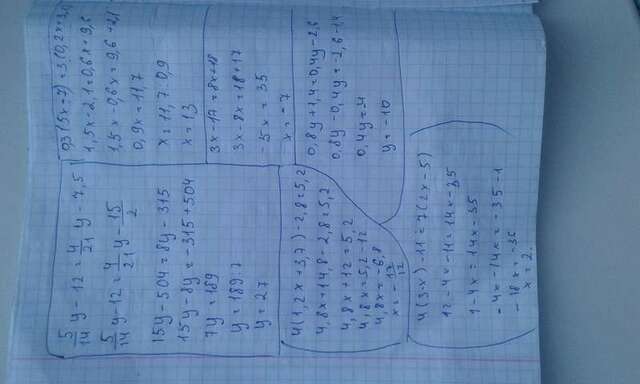 5/14 y - 12 = 4/21 y - 7,5
5/14 y - 12 = 4/21 y - 15/2
15y - 504 = 8y - 315
15y - 8y = -315 + 504
7y = 189
y = 189 : 7
y = 27
0,3(5x - 7) = 3(0,2x + 3,
1,5x - 2,1 = 0,6x + 9,6
1,5x - 0,6x = 9,6 + 2,1
0,9x = 11,7
x = 11,7 : 0,9
x = 13
3x - 17 = 8x + 18
3x - 8x = 18 + 17
-5x = 35
x = -7
4(1,2x + 3,7) - 2,8 = 5,2
4,8x + 14,8 - 2,8 = 5,2
4,8x + 12 = 5,2
4,8x = 5,2 - 12
4,8x = -6,8
x = -17/12
0,8y + 1,4 = 0,4y - 2,6
0,8y - 0,4y = -2,6 - 1,4
y = -10
4(3-x) - 11 = 7(2x - 5)
12 - 4x - 11 = 14x - 35
1 - 4x = 14x - 35
-4x - 14x = -35 - 1
-18x = -36
x = 2.